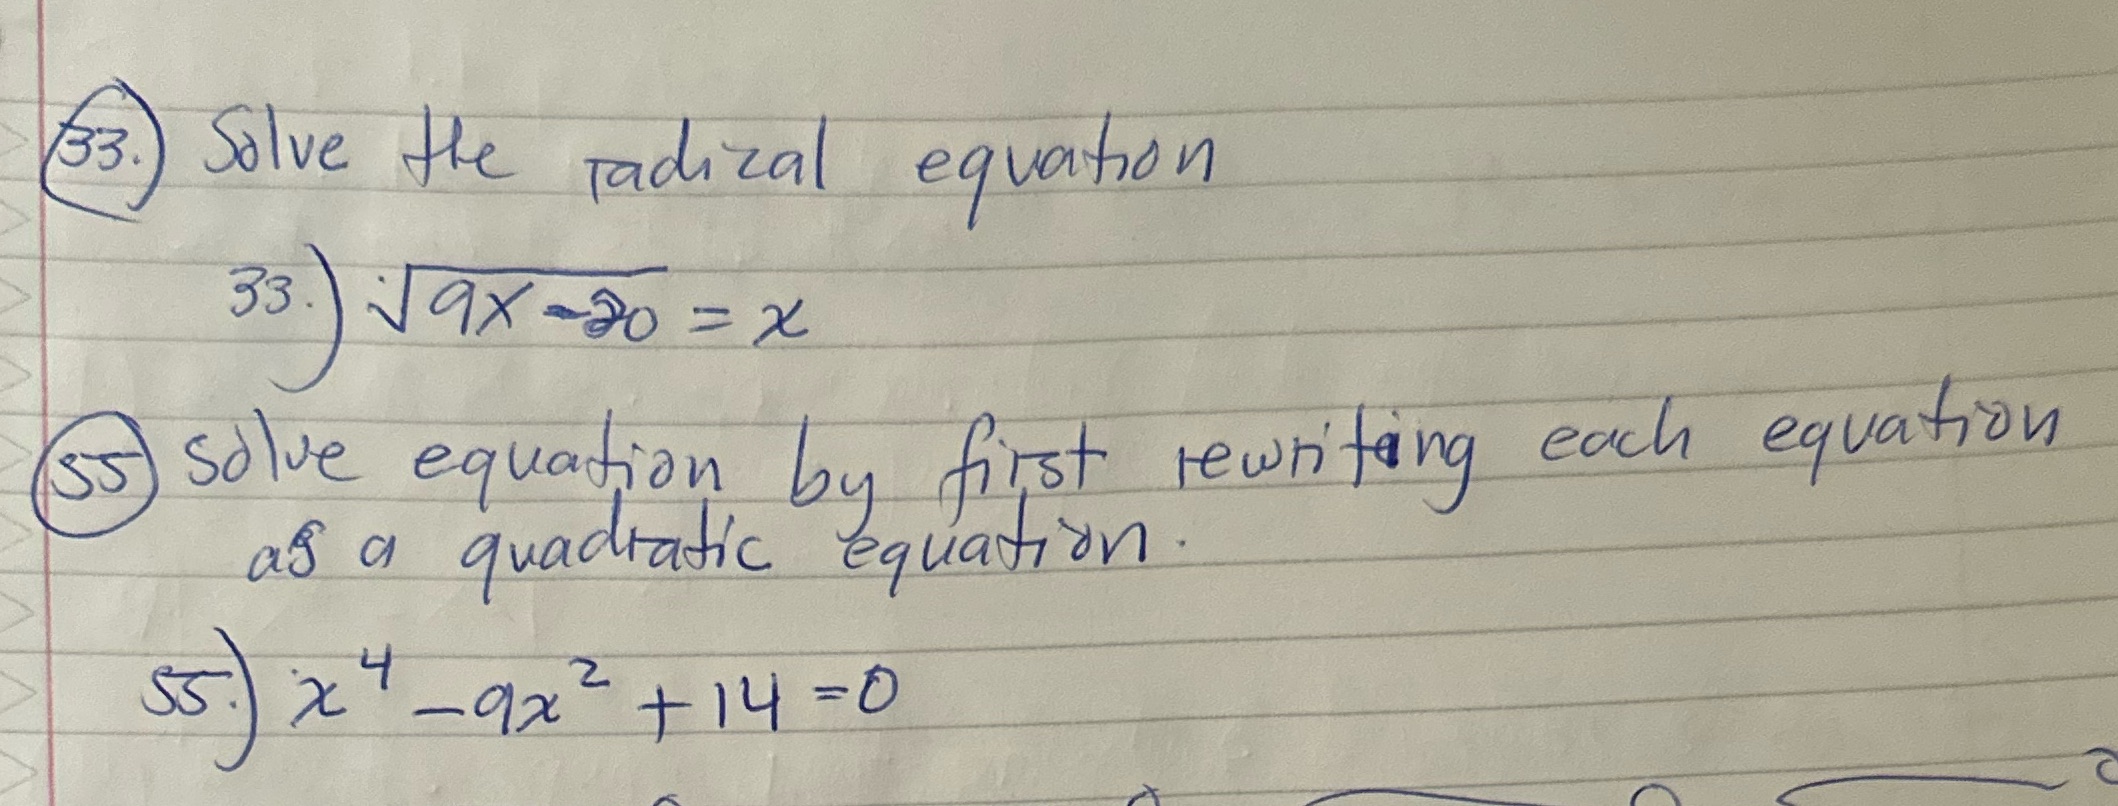 33.) Solve the radical equation
33.) √9x-20 = x
55) solve equation by first rewriting each equation
as a quadratic equation.
55.) x⁴ - 9x² + 14 = 0